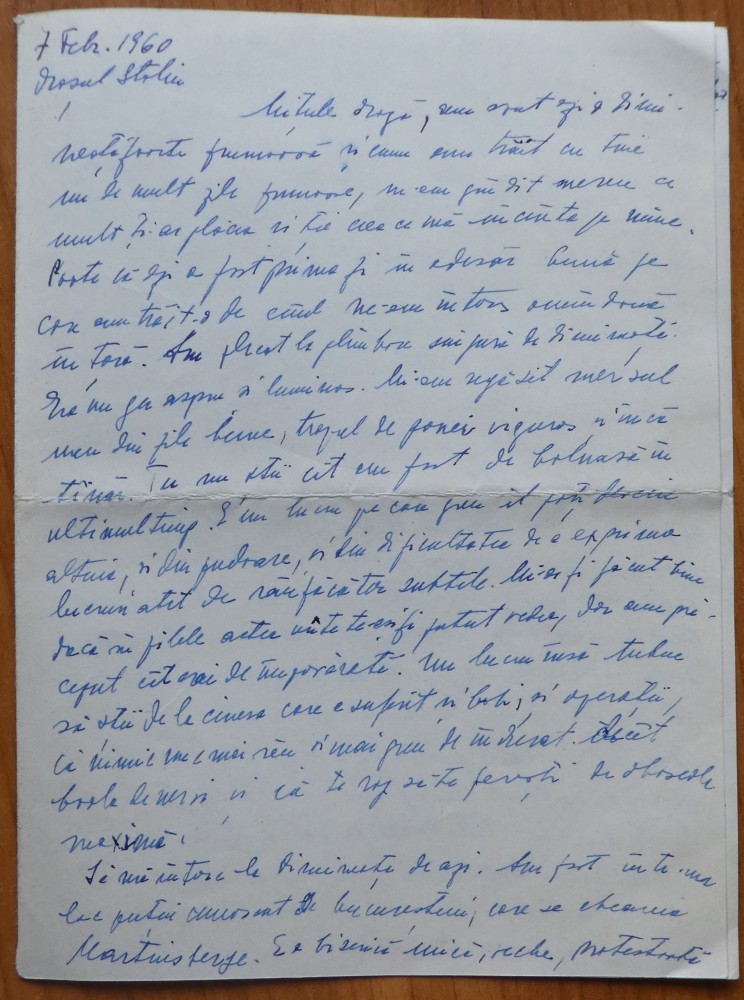 7 Febr. 1960
Orașul Stalin
dragă, am avut azi o dimi-
neață foarte frumoasă și cum am trăit cu tine
de mult zile frumoase, m-am gîndit mereu ce
mult ți-ar plăcea și ție ceea ce mă încînta pe mine.
Poate că azi a fost prima zi în adevăr bună pe
care am trăit-o de cînd ne-am întors amîndouă
în țară. Am plecat la plimbare singură de dimineață.
Era un ger aspru și luminos. Mi-am regăsit mersul
meu din zile bune, trapul de poney viguros și încă
tînăr. Tu nu știi cît am fost de bolnavă în
ultimul timp. E un lucru pe care greu îl poți descrie
altuia, și din pudoare, și din dificultatea de a exprima
lucruri atît de răufăcător subtile. Mi-ar fi făcut bine
dacă în zilele acelea te-aș fi putut vedea, dar am pri-
ceput cît erai de împovărată. Un lucru însă trebue
să știi de la cineva care a suferit și boli, și operații,
că nimic nu e mai rău și mai greu de îndurat decît
boala de nervi și că te rog să te ferești de oboseala
maximă.
Să mă întorc la dimineața de azi. Am fost într-un
loc puțin cunoscut de bucureșteni, care se cheamă
Martinsberge. E o biserică mică, veche, protestantă